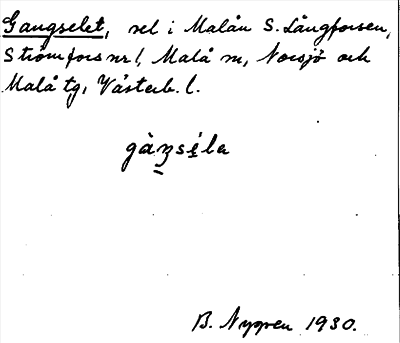 Gangselet, sel i Malån S. Långforsen,
Strömfors nr 1, Malå sn, Norsjö och
Malå tg, Västerb. l.
gàŋséla
B. Nygren 1930.